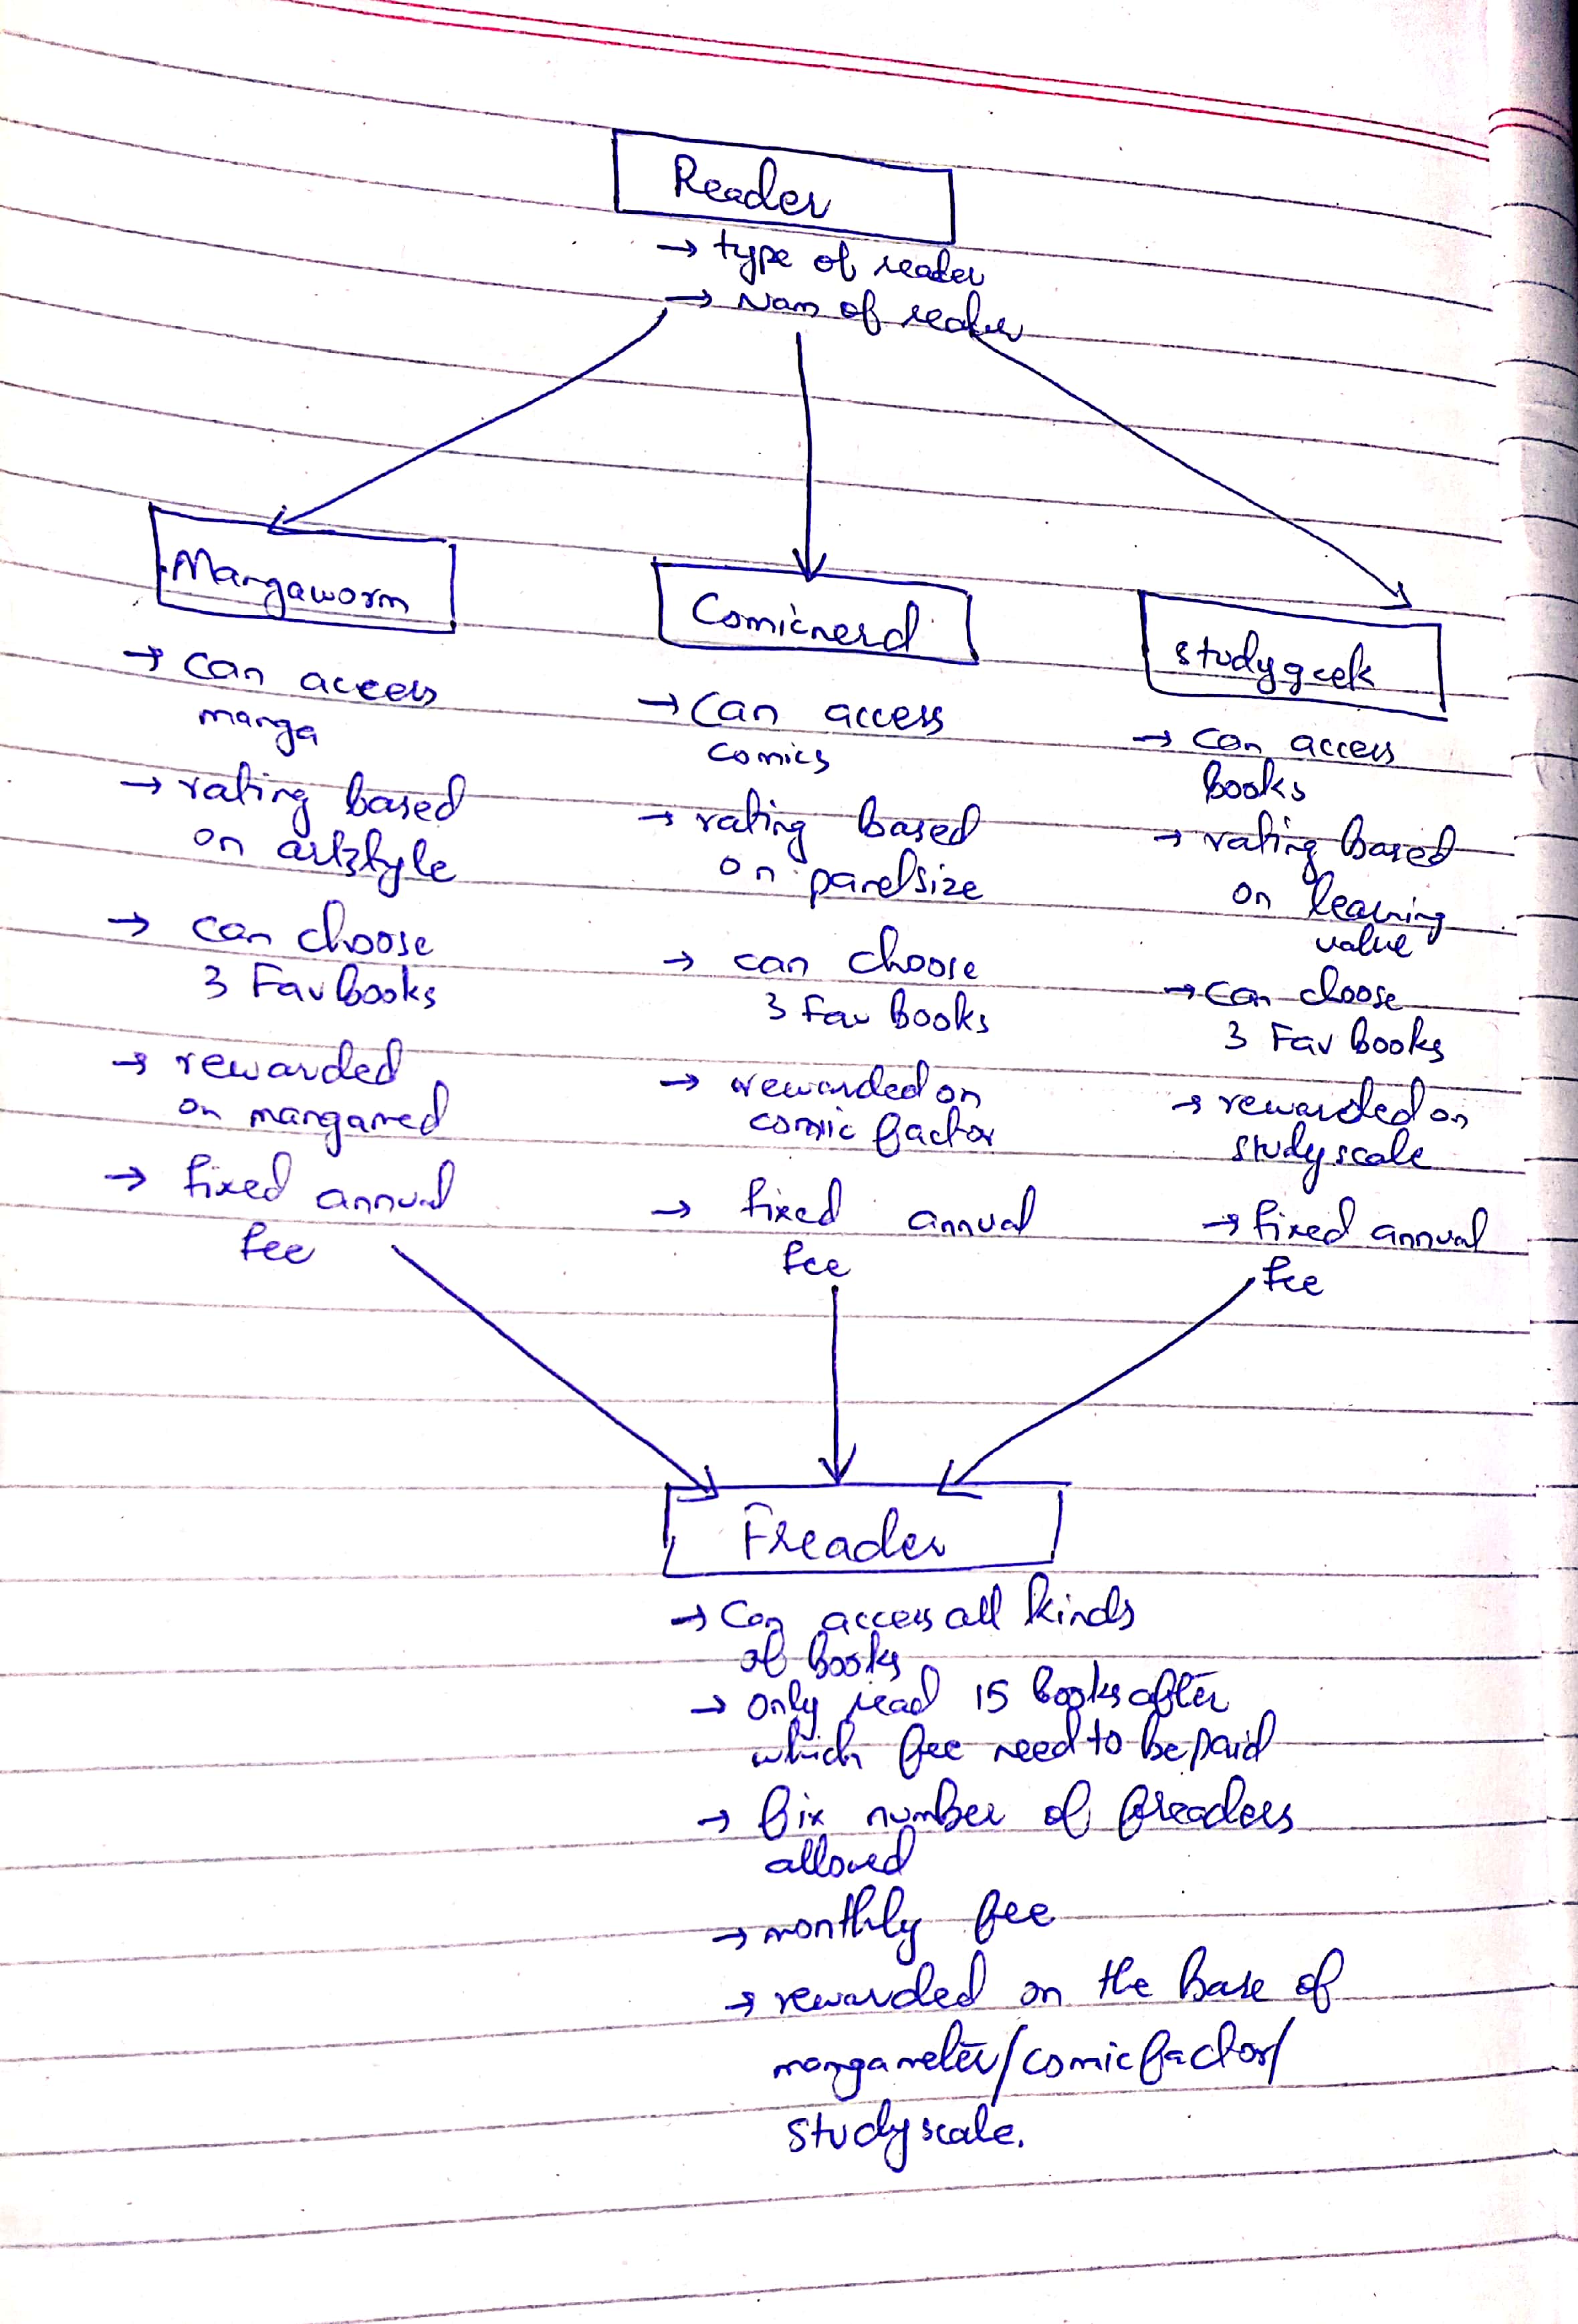 Reader
→ type of reader
→ Nam of reader
Mangaworm
→ can access
manga
→ rating based
on artstyle
→ can choose
3 Fav books
→ rewarded
on mangamed
→ fixed annual
fee
Comicnerd
→ Can access
comics
→ rating based
on panelsize
→ can choose
3 Fav books
→ rewarded on
comic factor
→ fixed annual
fee
studygeek
→ can access
books
→ rating based
on learning
value
→ can choose
3 Fav books
→ rewarded on
studyscale
→ fixed annual
fee
Freader
→ Can access all kinds
of books
→ only read 15 books after
which fee need to be paid
→ fix number of freaders
allowed
→ monthly fee
→ rewarded on the base of
mangameter/comicfactor/
studyscale.